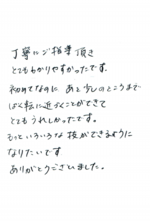 丁寧にご指導頂き
とてもわかりやすかったです。
初めてなのに あと少しのところまで
ばく転に近づくことができて
とてもうれしかったです。
もっといろいろな 技ができるように
なりたいです
ありがとうございました。